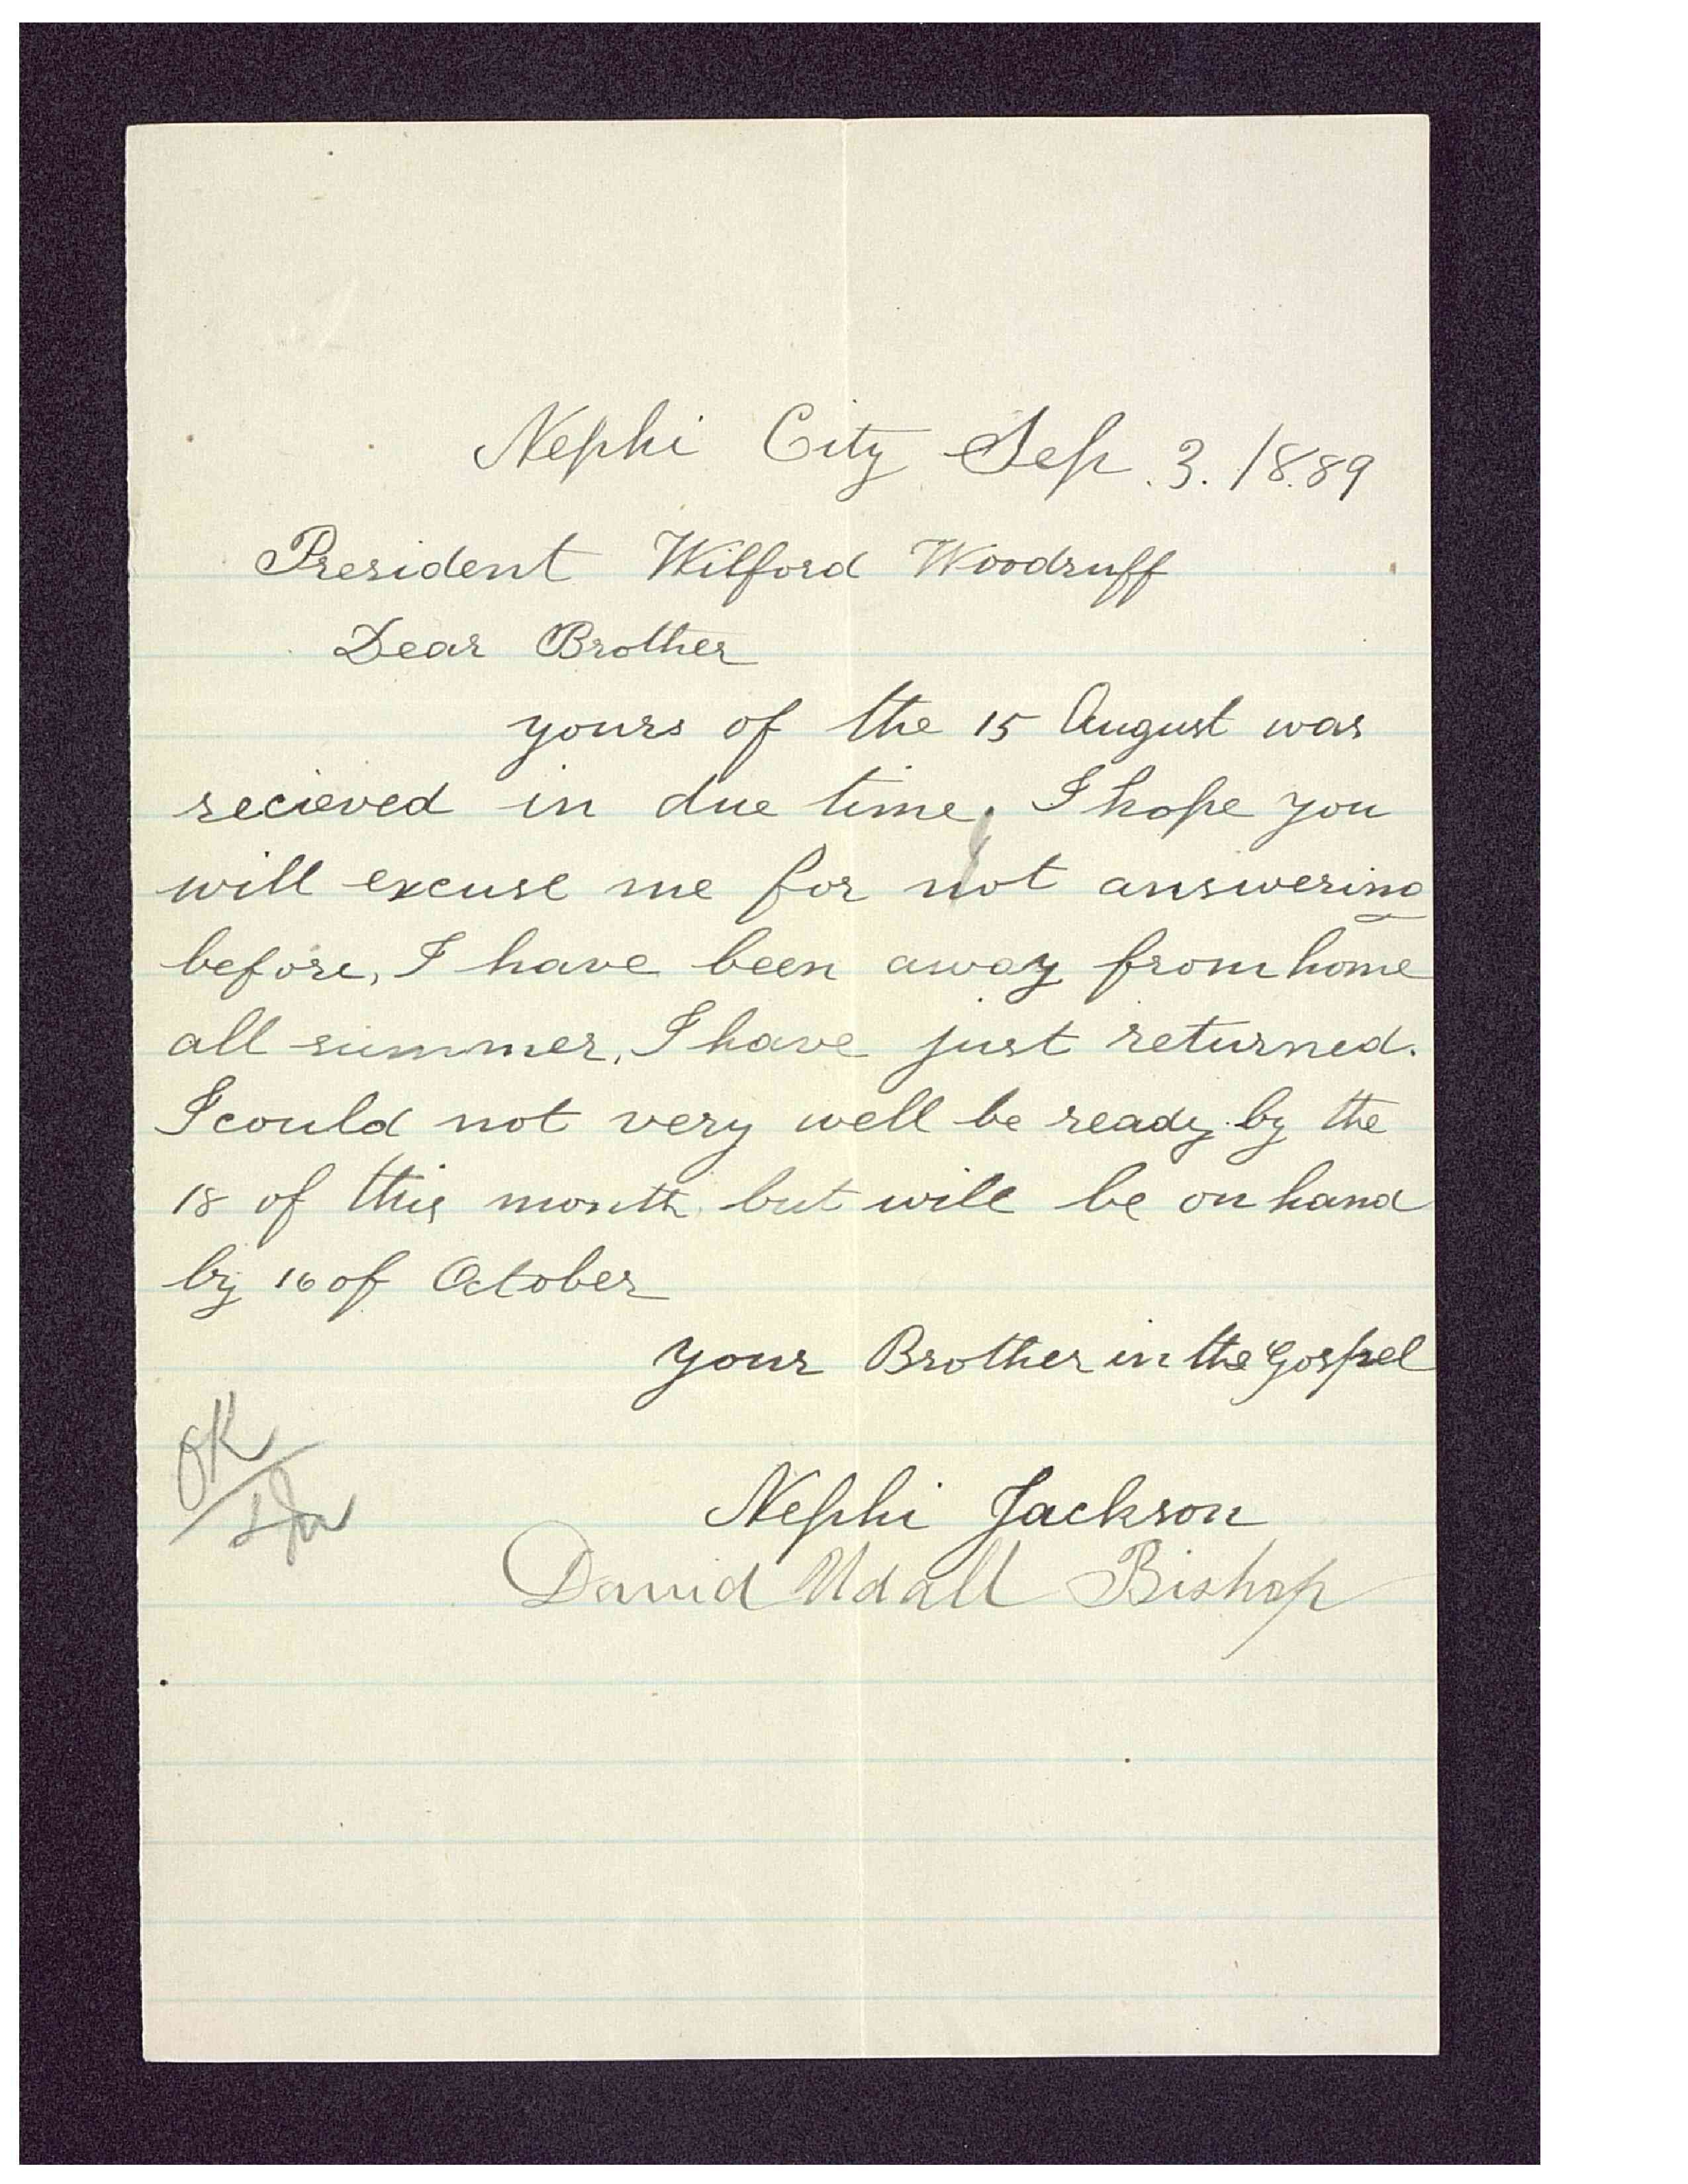 Nephi City Sep. 3. 1889
President Wilford Woodruff
Dear Brother
yours of the 15 August was
recieved in due time. I hope you
will excuse me for not answering
before, I have been away from home
all summer, I have just returned.
I could not very well be ready by the
18 of this month but will be on hand
by 16 of October
your Brother in the Gospel
Nephi Jackson
David Udall Bishop
OK